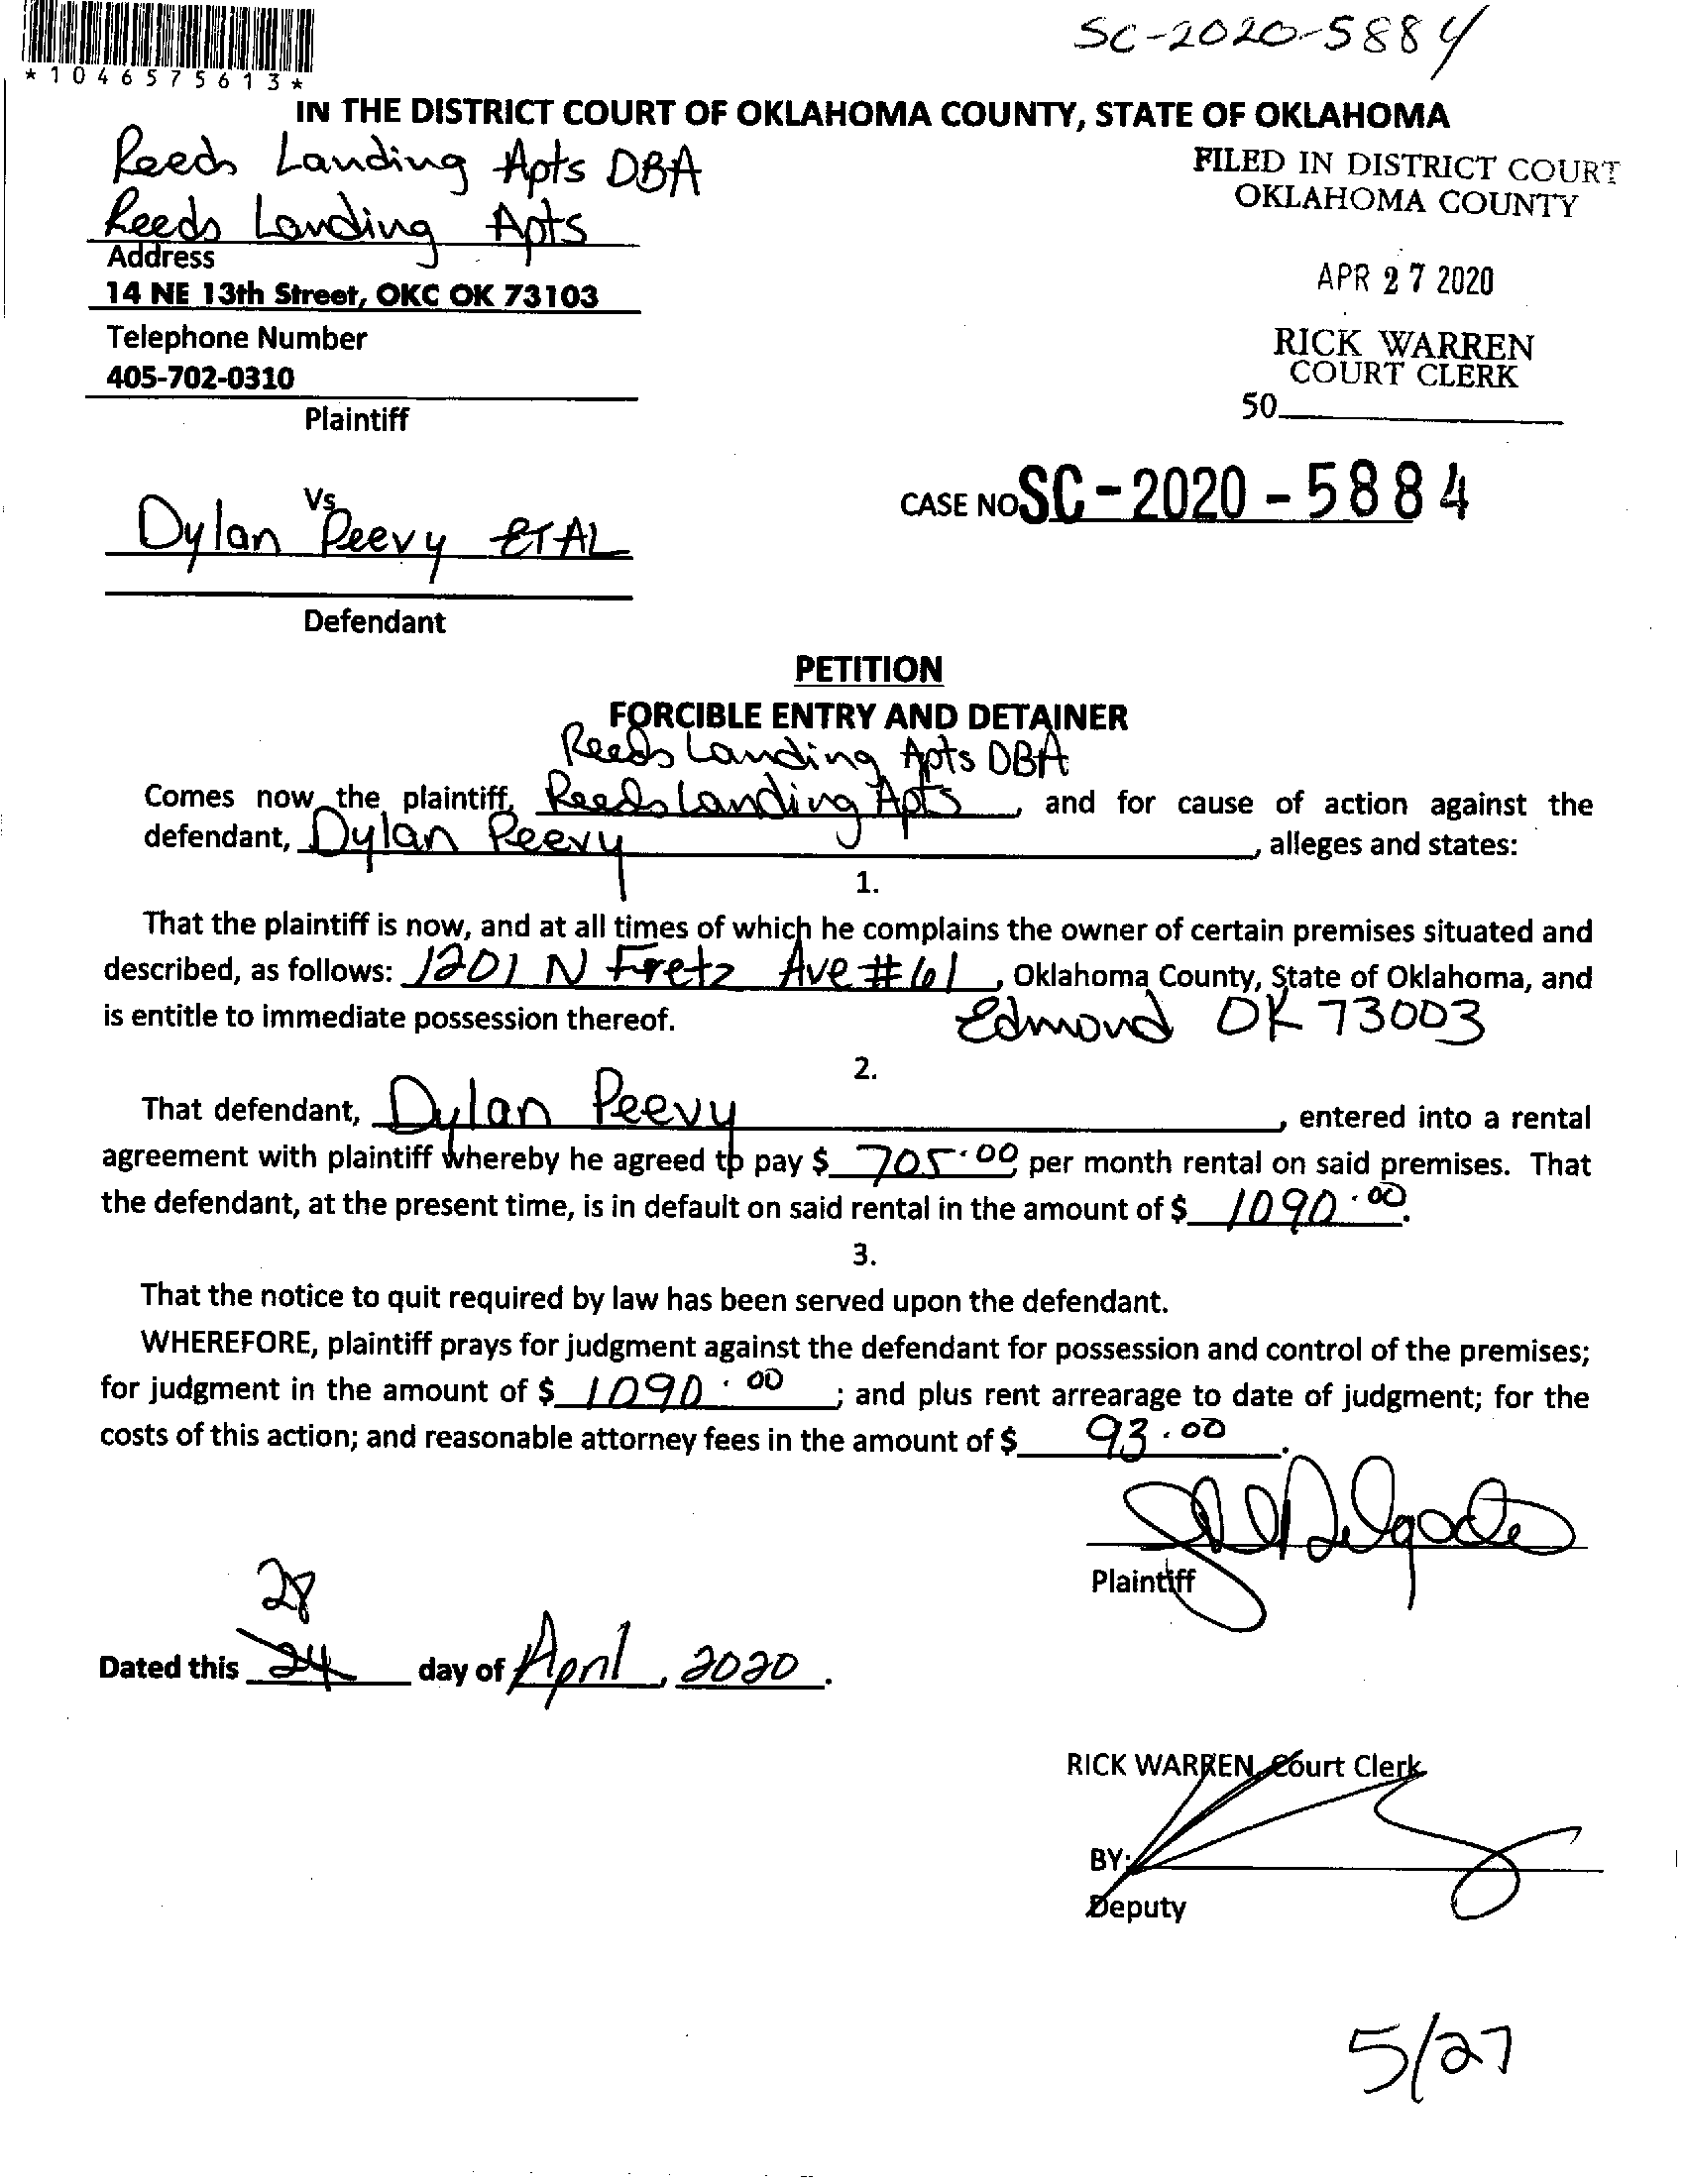 SC-2020-5884
*1046575613*
IN THE DISTRICT COURT OF OKLAHOMA COUNTY, STATE OF OKLAHOMA
Reeds Landing Apts DBA
Reeds Landing Apts
Address
14 NE 13th Street, OKC OK 73103
Telephone Number
405-702-0310
Plaintiff
FILED IN DISTRICT COURT
OKLAHOMA COUNTY
APR 27 2020
RICK WARREN
COURT CLERK
50
Vs
Dylan Peevy ETAL
Defendant
CASE NO SC-2020-5884
PETITION
FORCIBLE ENTRY AND DETAINER
Reeds Landing Apts DBA
Comes now the plaintiff, Reeds Landing Apts, and for cause of action against the
defendant, Dylan Peevy, alleges and states:
1.
That the plaintiff is now, and at all times of which he complains the owner of certain premises situated and
described, as follows: 1201 N Fretz Ave #61, Oklahoma County, State of Oklahoma, and
is entitle to immediate possession thereof. Edmond OK 73003
2.
That defendant, Dylan Peevy, entered into a rental
agreement with plaintiff whereby he agreed to pay $ 705.00 per month rental on said premises. That
the defendant, at the present time, is in default on said rental in the amount of $ 1090.00.
3.
That the notice to quit required by law has been served upon the defendant.
WHEREFORE, plaintiff prays for judgment against the defendant for possession and control of the premises;
for judgment in the amount of $ 1090.00; and plus rent arrearage to date of judgment; for the
costs of this action; and reasonable attorney fees in the amount of $ 93.00.
Plaintiff
28
Dated this 24 day of April, 2020.
RICK WARREN, Court Clerk
BY:
Deputy
5/27